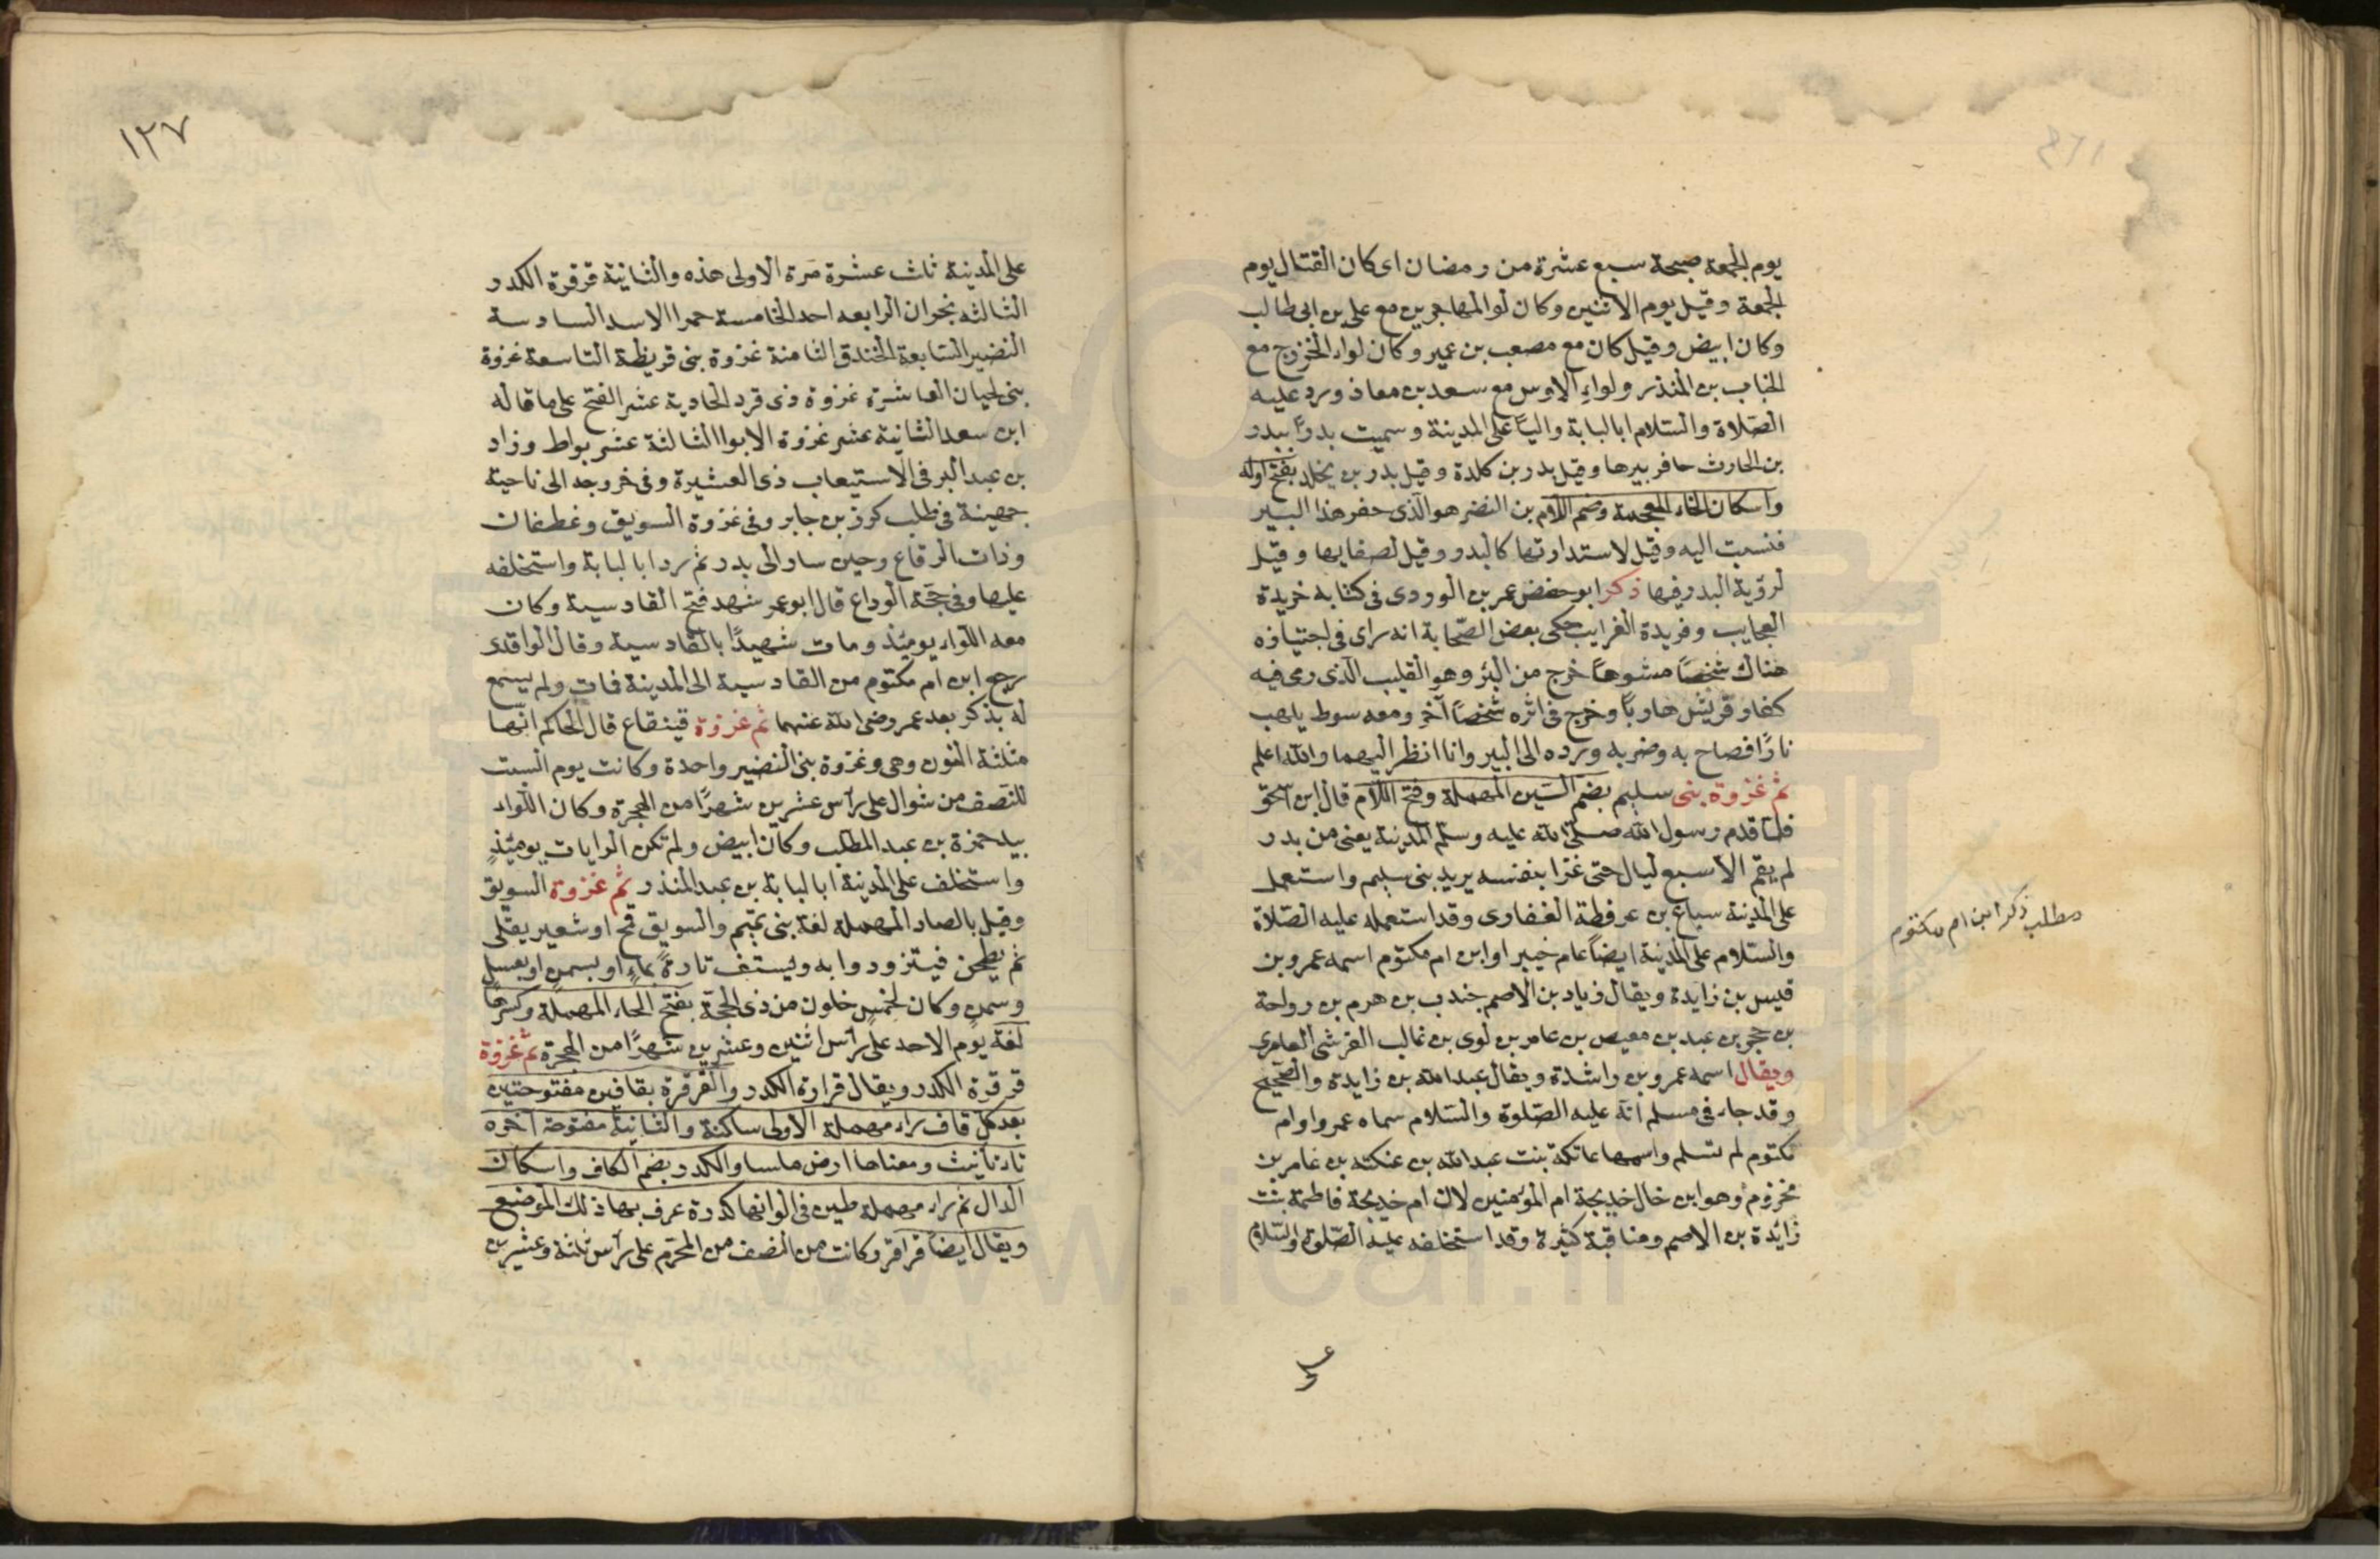 يوم الجمعة صبيحة سبع عشرة من رمضان اى كان القتال يوم
الجمعة وقيل يوم الاثنين وكان لوا المهاجرين مع على بن ابى طالب
وكان ابيض وقيل كان مع مصعب بن عمير وكان لواء الخزرج مع
الحباب بن المنذر ولواء الاوس مع سعد بن معاذ ورد عليه
الصلاة والسلام ابا لبابة واليًا على المدينة وسميت بدرًا ببدر
بن الحارث حافر بيرها وقيل بدر بن كلدة وقيل بدر بن يخلد بفتح اوله
واسكان الخاء المعجمة وضم اللام بن النضر هو الذى حفر هذا البير
فنسبت اليه وقيل لاستدارتها كالبدر وقيل لصفايها وقيل
لرؤية البدر فيها ذكر ابو حفص عمر بن الوردى فى كتابه خريدة
العجايب وفريدة الغرايب حكى بعض الصحابة انه راى فى اجتيازه
هناك شخصًا مشوهًا خرج من البئر وهو القليب الذى رمى فيه
كفار قريش هاربًا وخرج فى اثره شخصًا آخر ومعه سوط يلهب
نارًا فصاح به وضربه ورده الى البير وانا انظر اليهما والله اعلم
ثم غزوة بنى سليم بضم السين المهملة وفتح اللام قال ابن اسحق
فلما قدم رسول الله صلى الله عليه وسلم المدينة يعنى من بدر
لم يقم الا سبع ليال حتى غزا بنفسه يريد بنى سليم واستعمل
على المدينة سباع بن عرفطة الغفارى وقد استعمله عليه الصلاة
والسلام على المدينة ايضًا عام خيبر او ابن ام مكتوم اسمه عمرو بن
قيس بن زايدة ويقال زياد بن الاصم جندب بن هرم بن رواحة
بن حجر بن عبد بن معيص بن عامر بن لوى بن غالب القرشى العامرى
ويقال اسمه عمرو بن راشدة ويقال عبد الله بن زايدة والصحيح
وقد جاء فى مسلم انه عليه الصلوة والسلام سماه عمروا وام
مكتوم لم تسلم واسمها عاتكة بنت عبد الله بن عنكثه بن عامر بن
مخزوم وهو ابن خال خديجة ام المؤمنين لان ام خديجة فاطمة بنت
زائدة بن الاصم ومناقبة كثيرة وقد استخلفه عليه الصلوة والسلام
مطلب ذكر ابن ام مكتوم
على
١٢٧
على المدينة ثلث عشرة مرة الاولى هذه والثانية قرقرة الكدر
الثالثه نجران الرابعه احد الخامسة حمرا الاسد السادسة
النضير السابعة الخندق الثامنة غزوة بنى قريظة التاسعة غزوة
بنى لحيان العاشرة غزوة ذى قرد الحادية عشر الفتح على ما قاله
ابن سعد الثانية عشر غزوة الابوا الثالثة عشر بواط وزاد
بن عبد البر فى الاستيعاب ذى العشيرة وفى خروجه الى ناحية
جهينة فى طلب كرز بن جابر وفى غزوة السويق وغطفان
وذات الرقاع وحين سار الى بدر ثم رد ابا لبابة واستخلفه
عليها وفى حجة الوداع قال ابو عمر شهد فتح القادسية وكان
معه اللواء يومئذ ومات شهيدًا بالقادسية وقال الواقدى
رجع ابن ام مكتوم من القادسية الى المدينة فمات ولم يسمع
له بذكر بعد عمر رضى الله عنهما ثم غزوة قينقاع قال الحاكم انها
مثلثة النون وهى وغزوة بنى النضير واحدة وكانت يوم السبت
للنصف من شوال على رأس عشرين شهرًا من الهجرة وكان اللواء
بيد حمزة بن عبد المطلب وكان ابيض ولم تكن الرايات يومئذٍ
واستخلف على المدينة ابا لبابة بن عبد المنذر ثم غزوة السويق
وقيل بالصاد المهملة لغة بنى تميم والسويق قمح او شعير يقلى
ثم يطحن فيتزودوا به وليستف تارةً بماءٍ او بسمن او بعسل
وسمن وكان لخمس خلون من ذى الحجة بفتح الحاء المهملة وكسرها
لغة يوم الاحد على رأس اثنين وعشرين شهرًا من الهجرة ثم غزوة
قرقرة الكدر ويقال قرارة الكدر والقرقرة بقافين مفتوحتين
بعد كل قاف راء مهملة الاولى ساكنة والثانية مفتوحة آخره
تاء تانيث ومعناها ارض ملسا والكدر بضم الكاف واسكان
الدال ثم راء مهملة طين فى الوانها كدرة عرف بها ذلك الموضع
ويقال ايضًا قراقر وكانت من النصف من المحرم على رأس ثلثة وعشرين
www.ical.ir